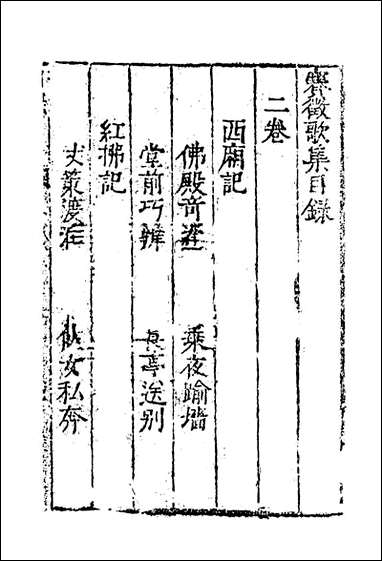 賽徵歌集目錄
二卷
西廂記
佛殿奇逢　乘夜踰墻
堂前巧辨　長亭送别
紅拂記
策渡　女私奔